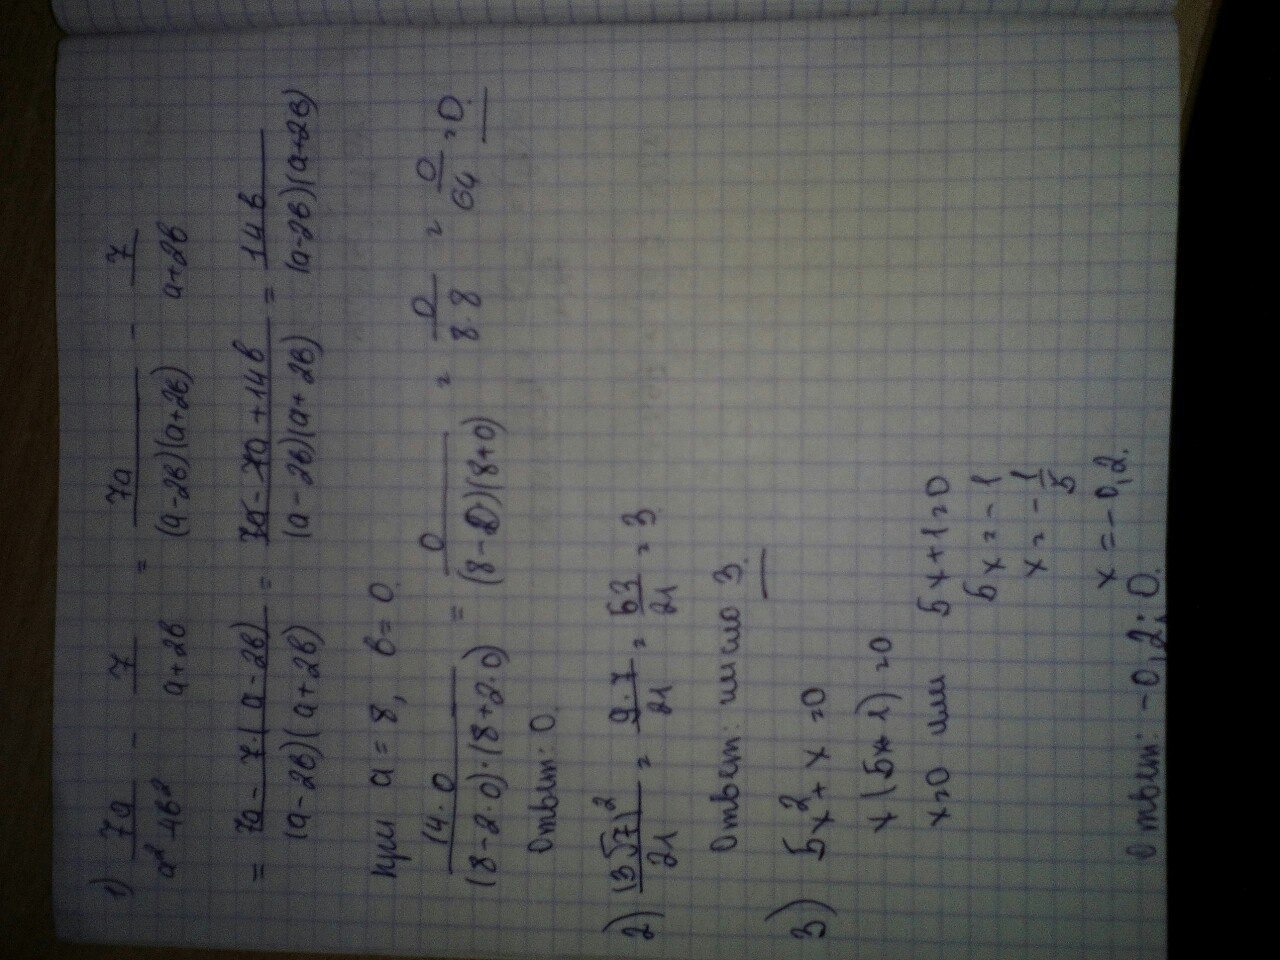 1) 7a/(a² - 4b²) - 7/(a+2b) = 7a/((a-2b)(a+2b)) - 7/(a+2b)
= (7a - 7·(a-2b))/((a-2b)(a+2b)) = (7a-7a+14b)/((a-2b)(a+2b)) = 14b/((a-2b)(a+2b))
при a=8, b=0.
14·0/((8-2·0)·(8+2·0)) = 0/((8-0)(8+0)) = 0/(8·8) = 0/64 = 0.
Ответ: 0.
2) (3√7)²/21 = 9·7/21 = 63/21 = 3.
Ответ: число 3.
3) 5x²+x=0
x(5x+1)=0
x=0 или 5x+1=0
5x=-1
x=-1/5
x=-0,2.
Ответ: -0,2; 0.